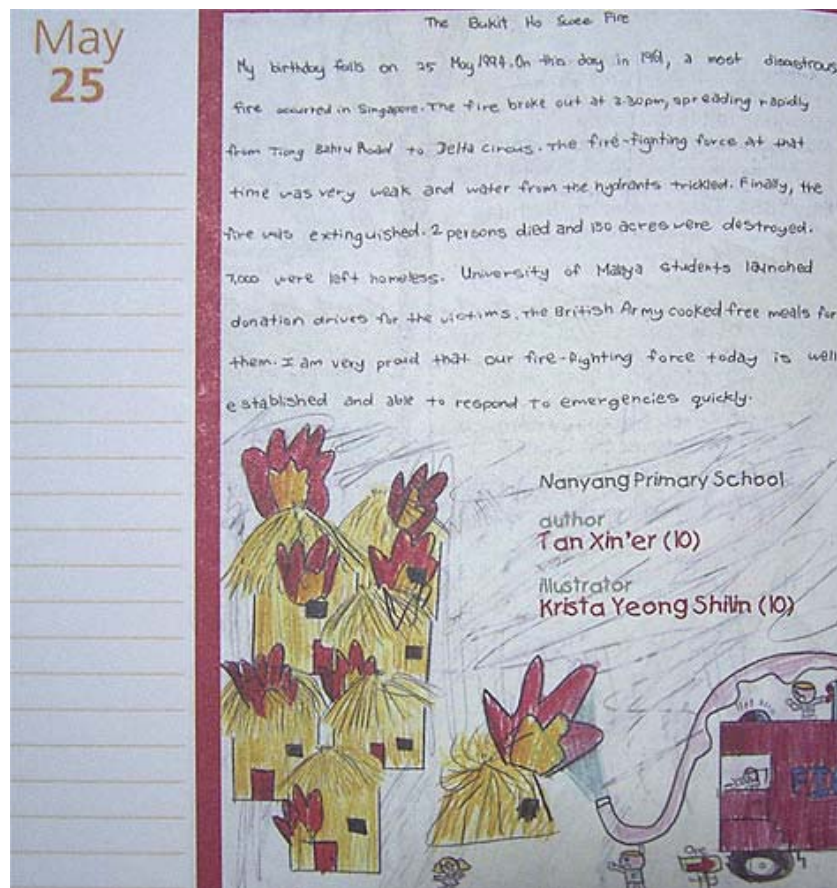 May
25
The Bukit Ho Swee Fire
My birthday falls on 25 May 1994. On this day in 1961, a most disastrous
fire occurred in Singapore. The fire broke out at 3.30pm, spreading rapidly
from Tiong Bahru Road to Delta Circus. The fire-fighting force at that
time was very weak and water from the hydrants trickled. Finally, the
fire was extinguished. 2 persons died and 150 acres were destroyed.
7,000 were left homeless. University of Malaya students launched
donation drives for the victims. The British Army cooked free meals for
them. I am very proud that our fire-fighting force today is well
established and able to respond to emergencies quickly.
Nanyang Primary School
author
Tan Xin'er (10)
illustrator
Krista Yeong Shilin (10)